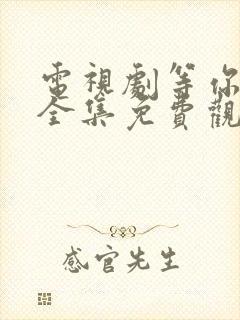 電視劇等你
全集免費觀
感官先生